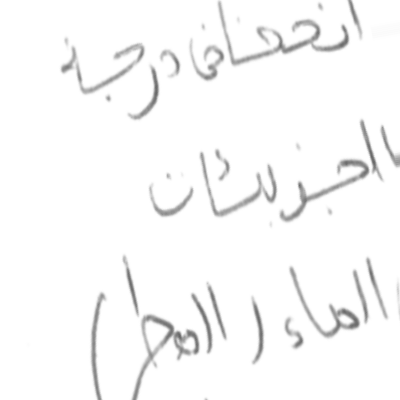 انخفاض درجة
الجزيئات
الماء (المطر)